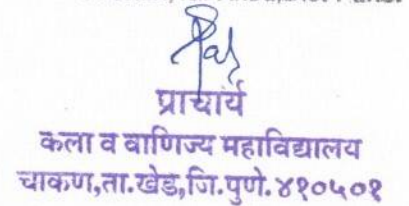 प्राचार्य
कला व वाणिज्य महाविद्यालय
चाकण,ता.खेड,जि.पुणे. ४१०५०१